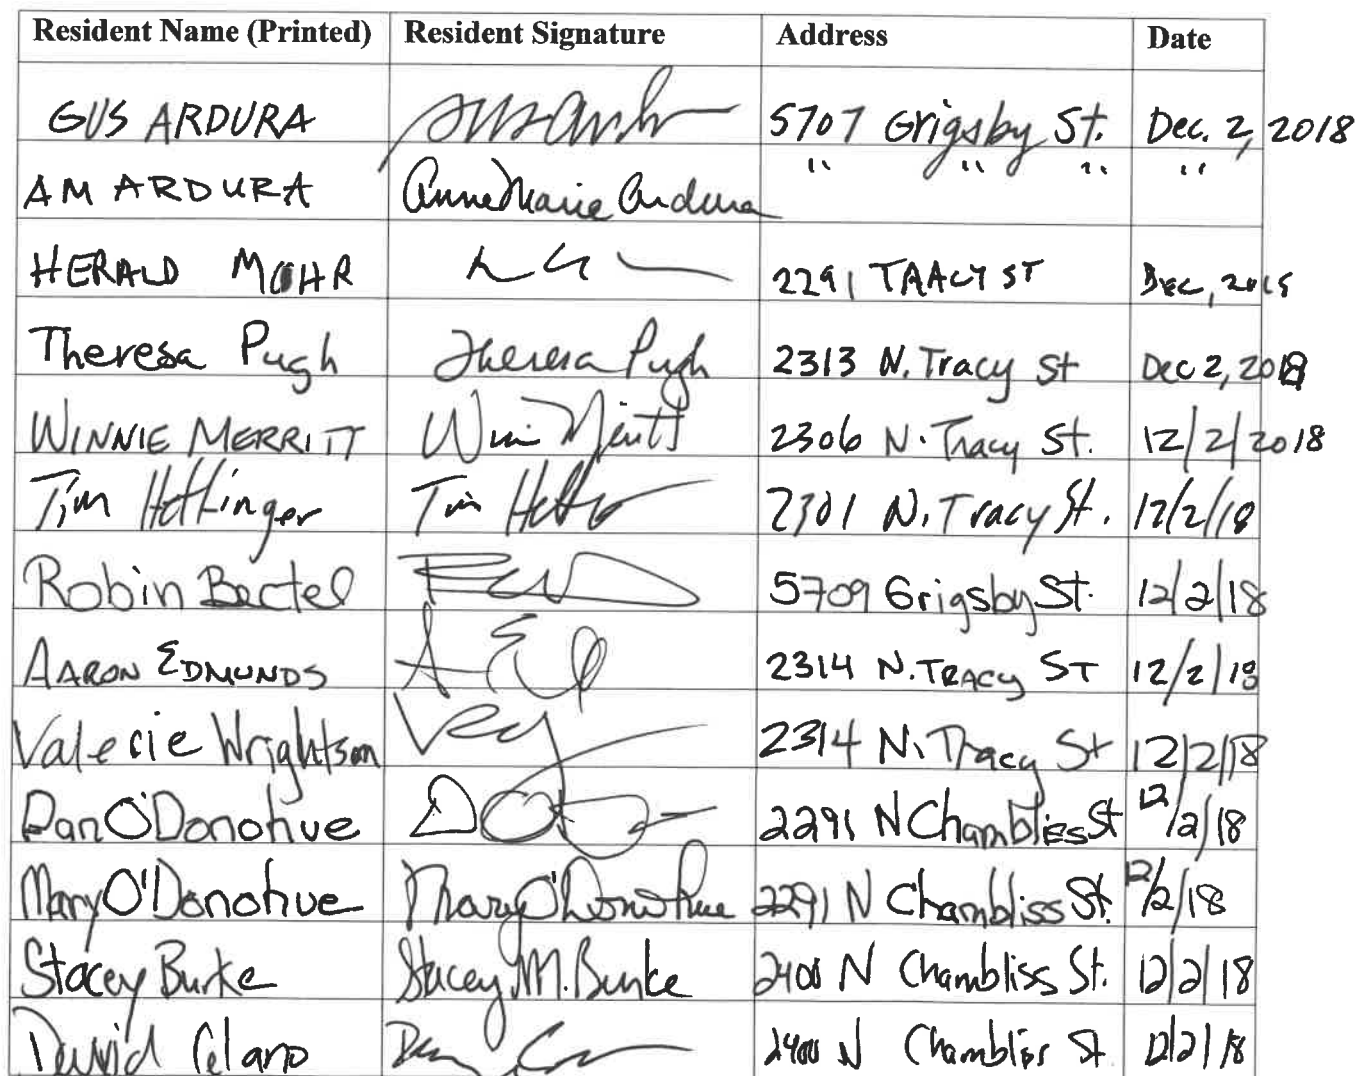 Resident Name (Printed) Resident Signature Address Date
GUS ARDURA 5707 Grigsby St. Dec. 2, 2018
AM ARDURA AnneMarie Ardura " " " "
HERALD MOHR 2291 TRACY ST Dec, 2018
Theresa Pugh Theresa Pugh 2313 N. Tracy St Dec 2, 2018
WINNIE MERRITT 2306 N. Tracy St. 12/2/2018
Tim Hettinger Tim 2301 N. Tracy St. 12/2/18
Robin Bectel 5709 Grigsby St. 12/2/18
AARON EDMUNDS 2314 N. TRACY ST 12/2/18
Valerie Wrightson 2314 N. Tracy St 12/2/18
Dan O'Donohue 2291 N Chambliss St 12/2/18
Mary O'Donohue Mary O'Donohue 2291 N Chambliss St. 12/2/18
Stacey Burke Stacey M. Burke 2400 N Chambliss St. 12/2/18
David Celano 2400 N Chambliss St 12/2/18